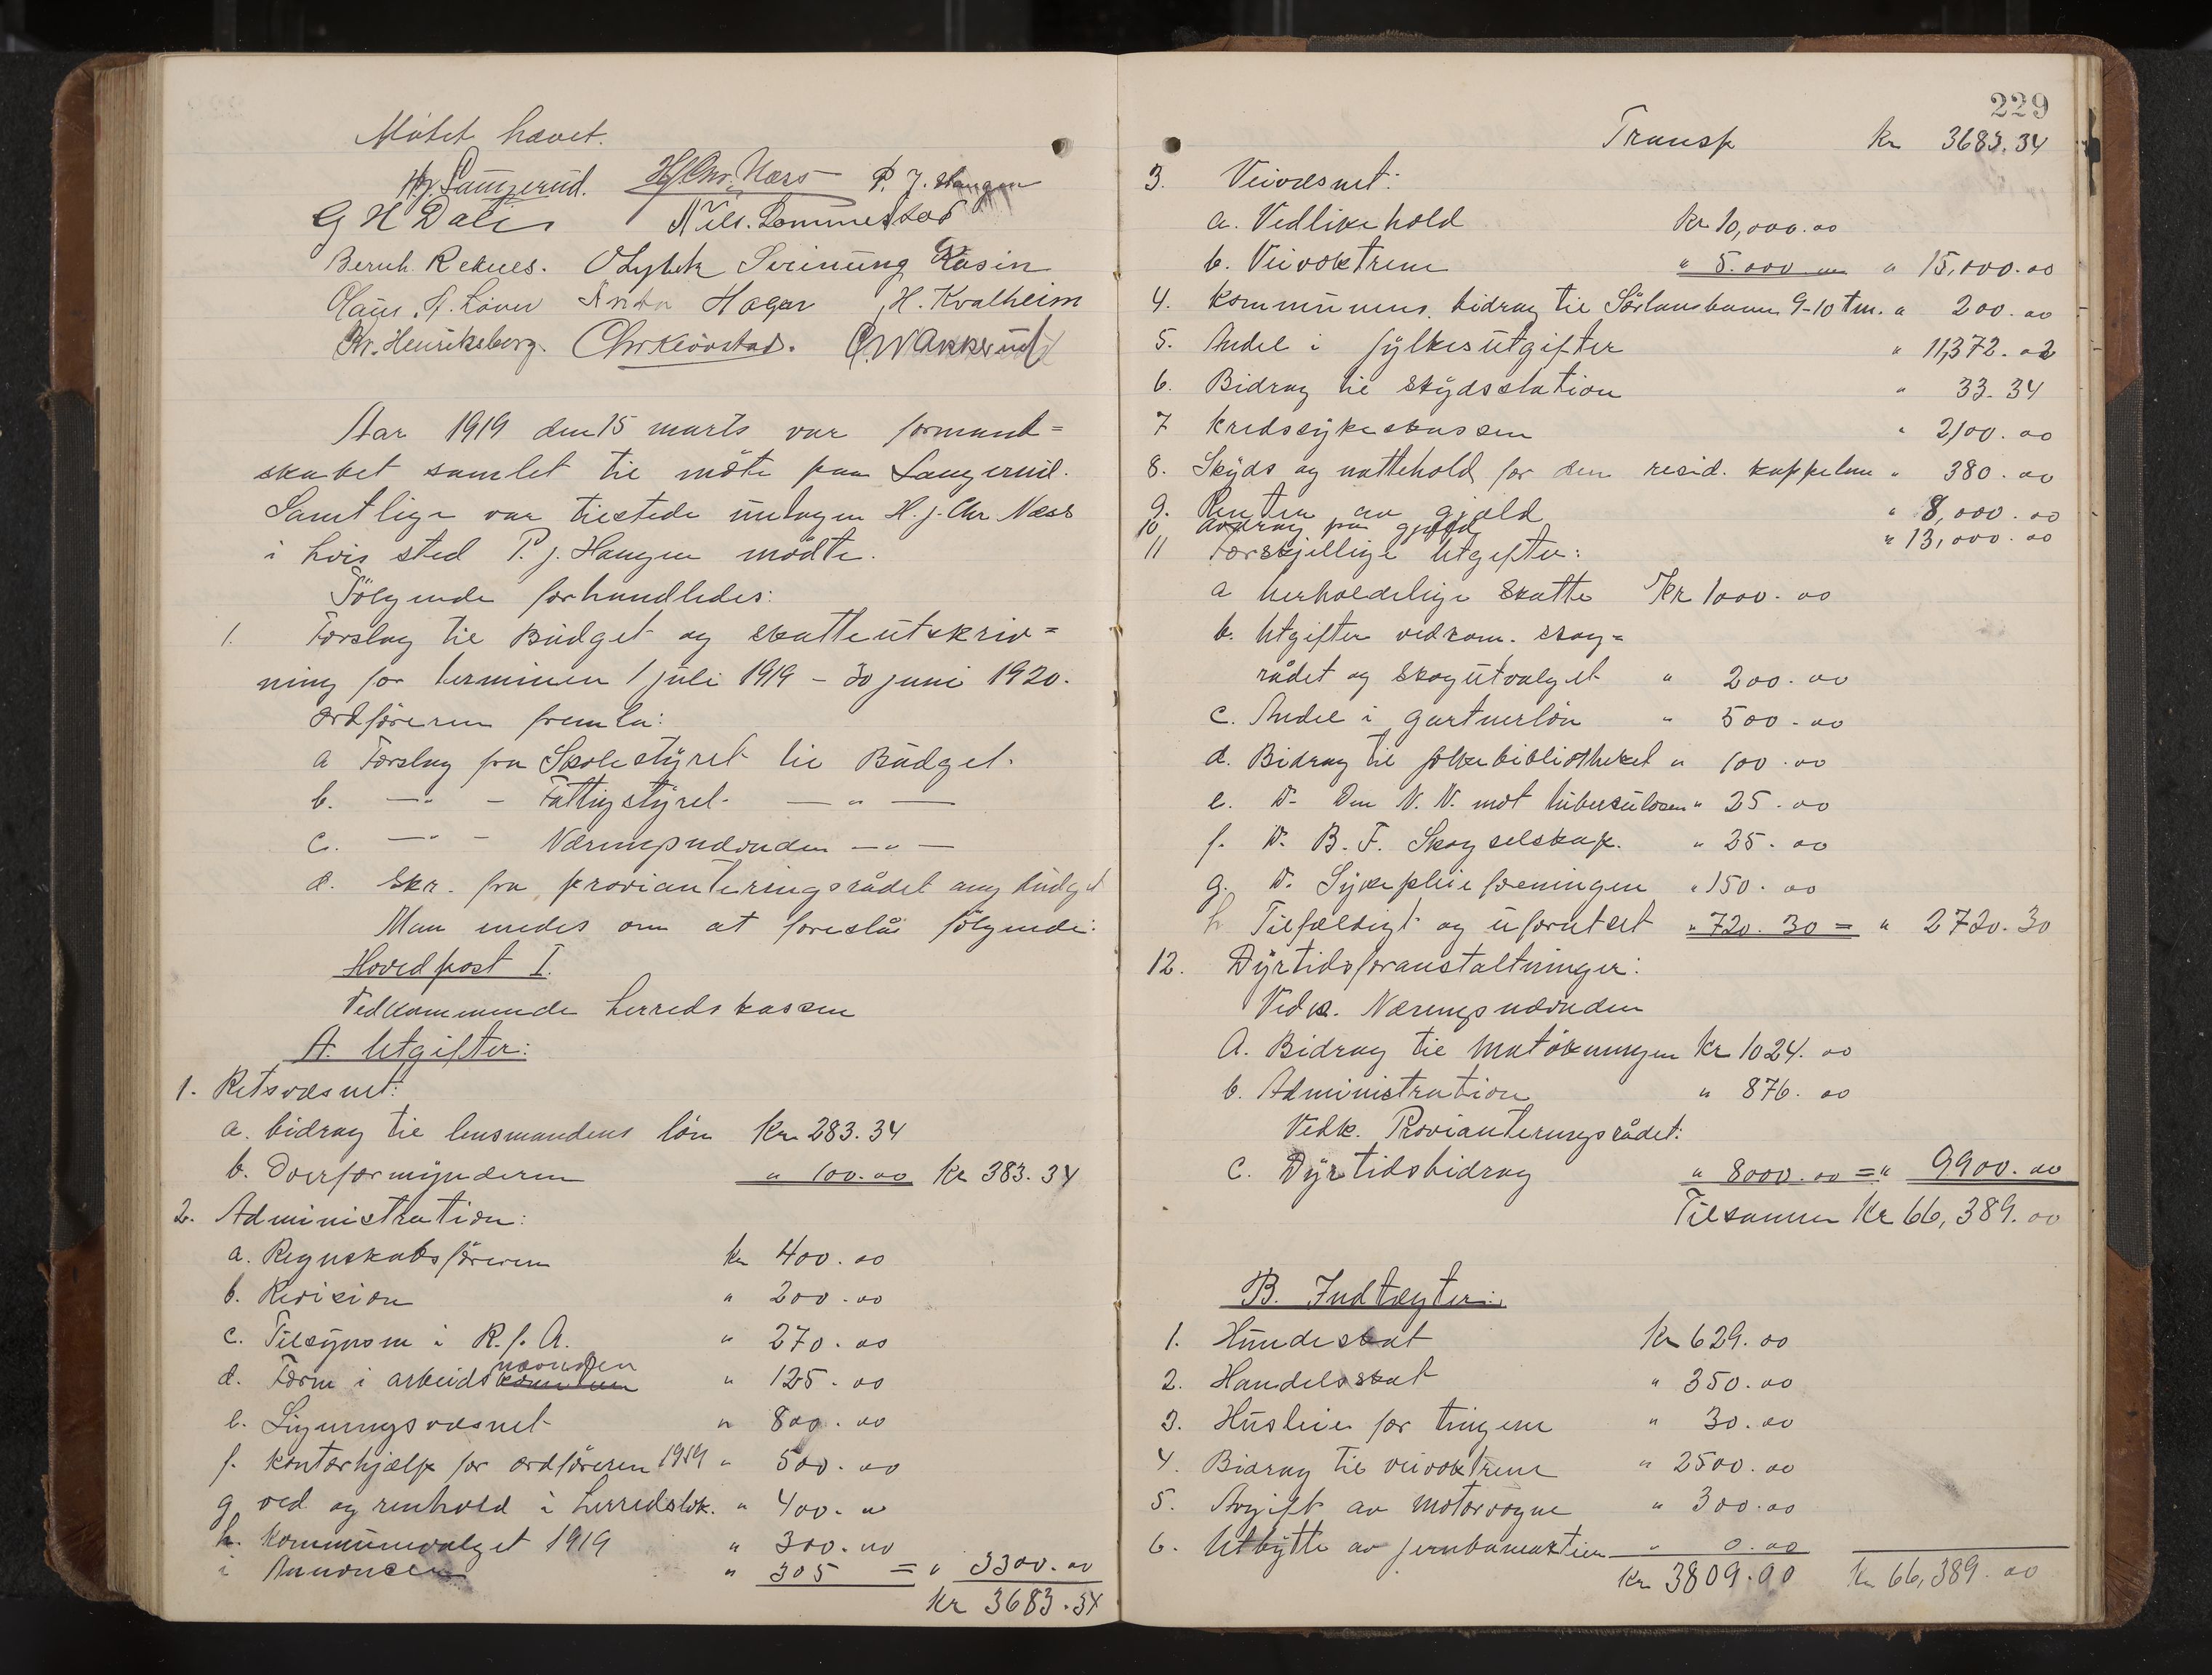 Møtet hævet.
Hj. Langerud. H. J. Chr. Næss P. J. Haugen
G H Dali Nils. Lommestad
Bernh. Reknes. O Lybek Sveinung Råsin
Claus. A. Liøver Hagar H. Kvalheim
Kr. Henriksberg. Chr Kløvstad. C. W Akkerud
Aar 1919 den 15 marts var formand=
skabet samlet til møte paa Langerud.
Samtlige var tilstede undtagen H. J. Chr. Næss
i hvis sted P. J. Haugen mødte.
Følgende forhandledes:
1. Forslag til Budget og skatteutskriv=
ning for terminen 1 juli 1919 – 30 juni 1920.
Ordføreren fremla:
a Forslag fra Skolestyret til Budget.
b. —"— – Fattigstyret — " —
c. —"— – Næringsnævnden — " —
d. Skr. fra provianteringsrådet ang budget
Man enedes om at foreslå følgende:
Hovedpost I.
Vedkommende herredskassen
A. Utgifter:
1. Retsvæsnet:
a. bidrag til lensmandens løn Kr. 283.34
b. Overformynderen " 100.00 Kr 383.34
2. Administration:
a. Regnskabsføreren kr 400.00
b. Revision " 200.00
c. Tilsynsm i R. f. A. " 270.00
d. Form i arbeids nævnden " 125.00
e. Ligningsvæsnet " 800.00
f. Kontorhjælp for ordføreren 1919 " 500.00
g ved og renhold i herredslok. " 400. "
h. Kommunevalget 1919 " 300.00
i Annoncer " 305 = " 3300.00
Kr 3683.34
229
Transp kr 3683.34
3. Veivæsnet:
a. Vedlikehold kr 10,000.00
b. Veivoktrene " 5.000 " " 15,000.00
4. Kommunens bidrag til Sørlansbanen 9-10 tm. " 200.00
5. Andel i fylkesutgifter " 11,372.02
6. Bidrag til skydsstation " 33.34
7 Kredssykekassen " 2,100.00
8. Skyds og nattehold for den resid. kappelan " 380.00
9. Renten av gjæld " 8,000.00
10 avdrag på gjæld " 13,000.00
11 Forskjellige Utgifter:
a uerholdelige skatte Kr 1000.00
b. Utgifter vedkom. skog=
rådet og skogutvalget " 200.00
c. Andel i gartnerløn " 500.00
d. Bidrag til folkebibliotheket " 100.00
e. D- Den N. N. mot tuberkulosen " 25.00
f. D. B. F. Skogselskap. " 25.00
g. D. Sykepleieforeningen " 150.00
h Tilfældigt og uforutset " 720.30 = " 2720.30
12. Dyrtidsforanstaltninger:
Vedk. Næringsnævnden
A. Bidrag til matøkningen Kr 1024.00
b. Administration " 876.00
Vedk. Provianteringsrådet:
c. Dyrtidsbidrag " 8000.00 = " 9900.00
Tilsammen Kr 66,389.00
B. Indtægter:
1. Hundeskat Kr 629.00
2. Handelsskat " 350.00
3. Husleie for tingene " 30.00
4. Bidrag til veivoktrene " 2500.00
5. Avgift av motorvogne " 300.00
6. Utbytte av jernbaneaktier " 0.00
Kr. 3809.00 Kr 66,389.00